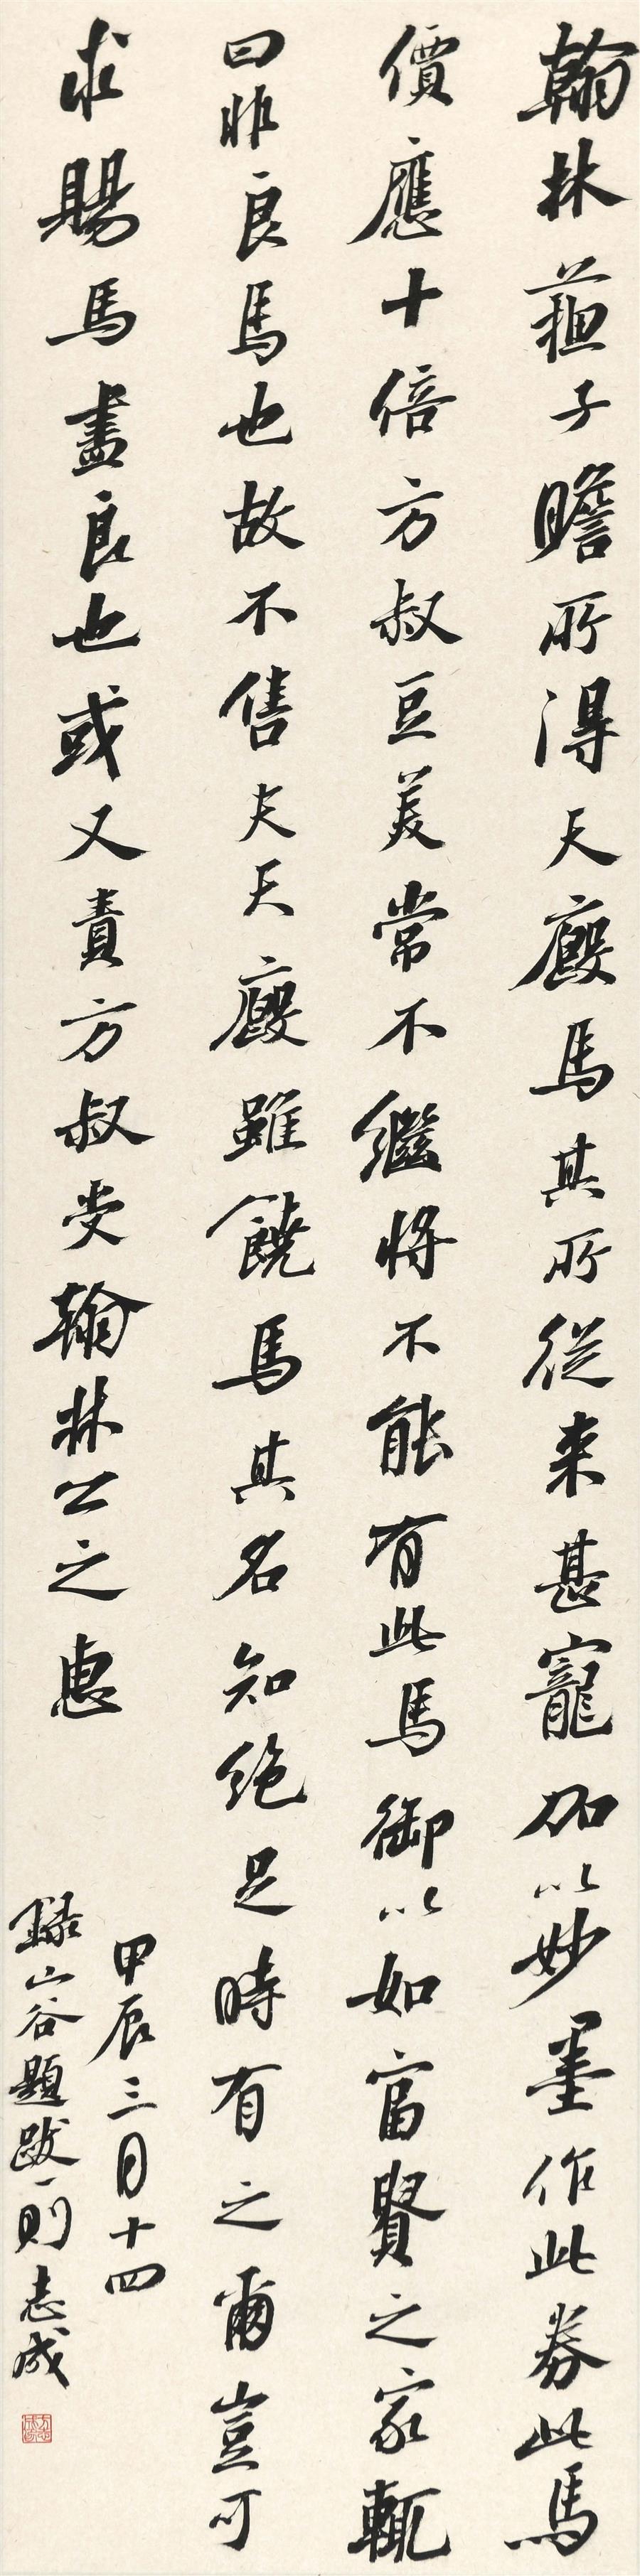 翰林蘓子瞻所得天廄馬其所從来甚寵加以妙墨作此券此馬
價應十倍方叔豆羙常不繼将不能有此馬御以如富賢之家輒
曰非良馬也故不售夫天廄雖饒馬其名知绝足時有之爾豈可
求賜馬盡良也或又責方叔受翰林公之惠
甲辰三月十四
録山谷題跋一則志成